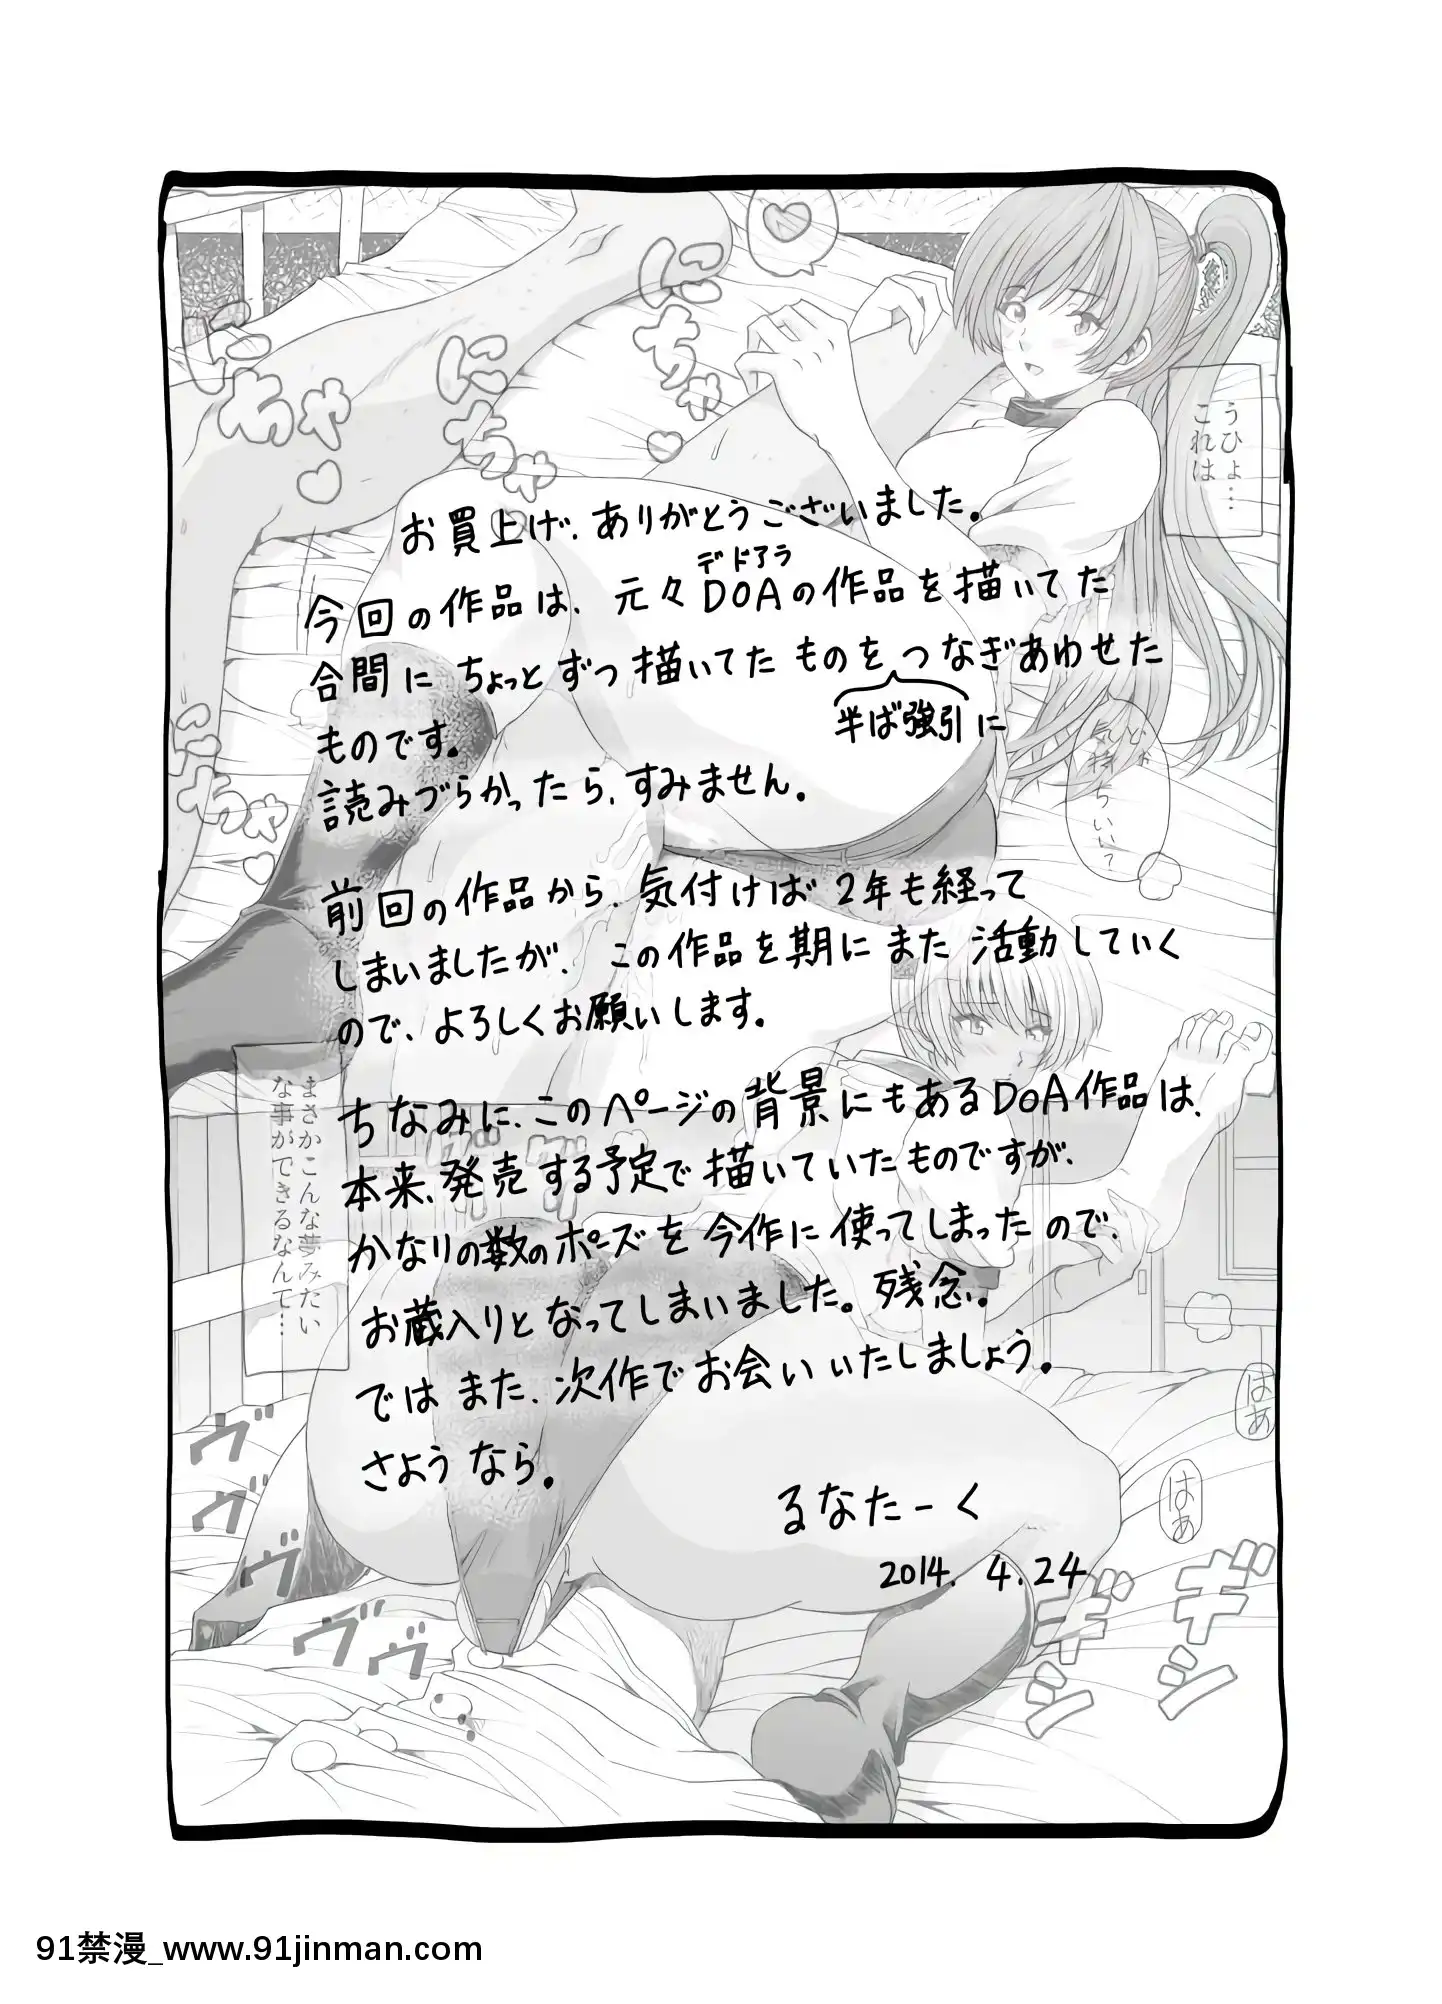 うひょ…
これは
にちゃ
にちゃ
にちゃ
お買上げ、ありがとうございました。
デドアラ
今回の作品は、元々DOAの作品を描いてた
合間にちょっとずつ描いてたものをつなぎあわせた
半ば強引に
ものです。
読みづらかったら、すみません。
にちゃ
前回の作品から、気付けば2年も経って
しまいましたが、この作品を期にまた活動していく
ので、よろしくお願いします。
まさかこんな夢みたい
な事ができるなんて…
ちなみに、このページの背景にもあるDOA作品は、
本来、発売する予定で描いていたものですが、
かなりの数のポーズを今作に使ってしまったので、
お蔵入りとなってしまいました。残念。
ではまた、次作でお会いいたしましょう。
さようなら。
るなたーく
2014. 4. 24
はぁ
はぁ
ヴヴ
ヴヴ
ヴヴ
ヴヴ
ギシ
ギシ
91禁漫_www.91jinman.com